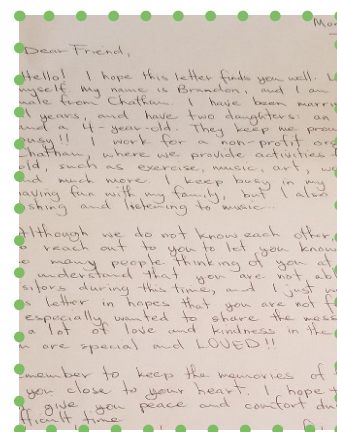 Mon
Dear Friend,
Hello! I hope this letter finds you well. L
myself my name is Brandon, and I am
male from Chatham. I have been marri
years, and have two daughters: an
and a 4-year-old. They keep me pre
busy!! I work for a non-profit org
Chatham, where we provide activities f
old, such as exercise, music, art, w
and much more. I keep busy in my
having fun with my family, but I also
shing and listening to music...
Although we do not know each other,
o reach out to you to let you know
e many people thinking of you at
understand that you are not abl
sitors during this time, and I just w
s letter in hopes that you are not f
especially wanted to share the mess
a lot of love and kindness in the
u are special and LOVED!!
member to keep the memories of
you close to your heart. I hope t
give you peace and comfort du
fficult time.